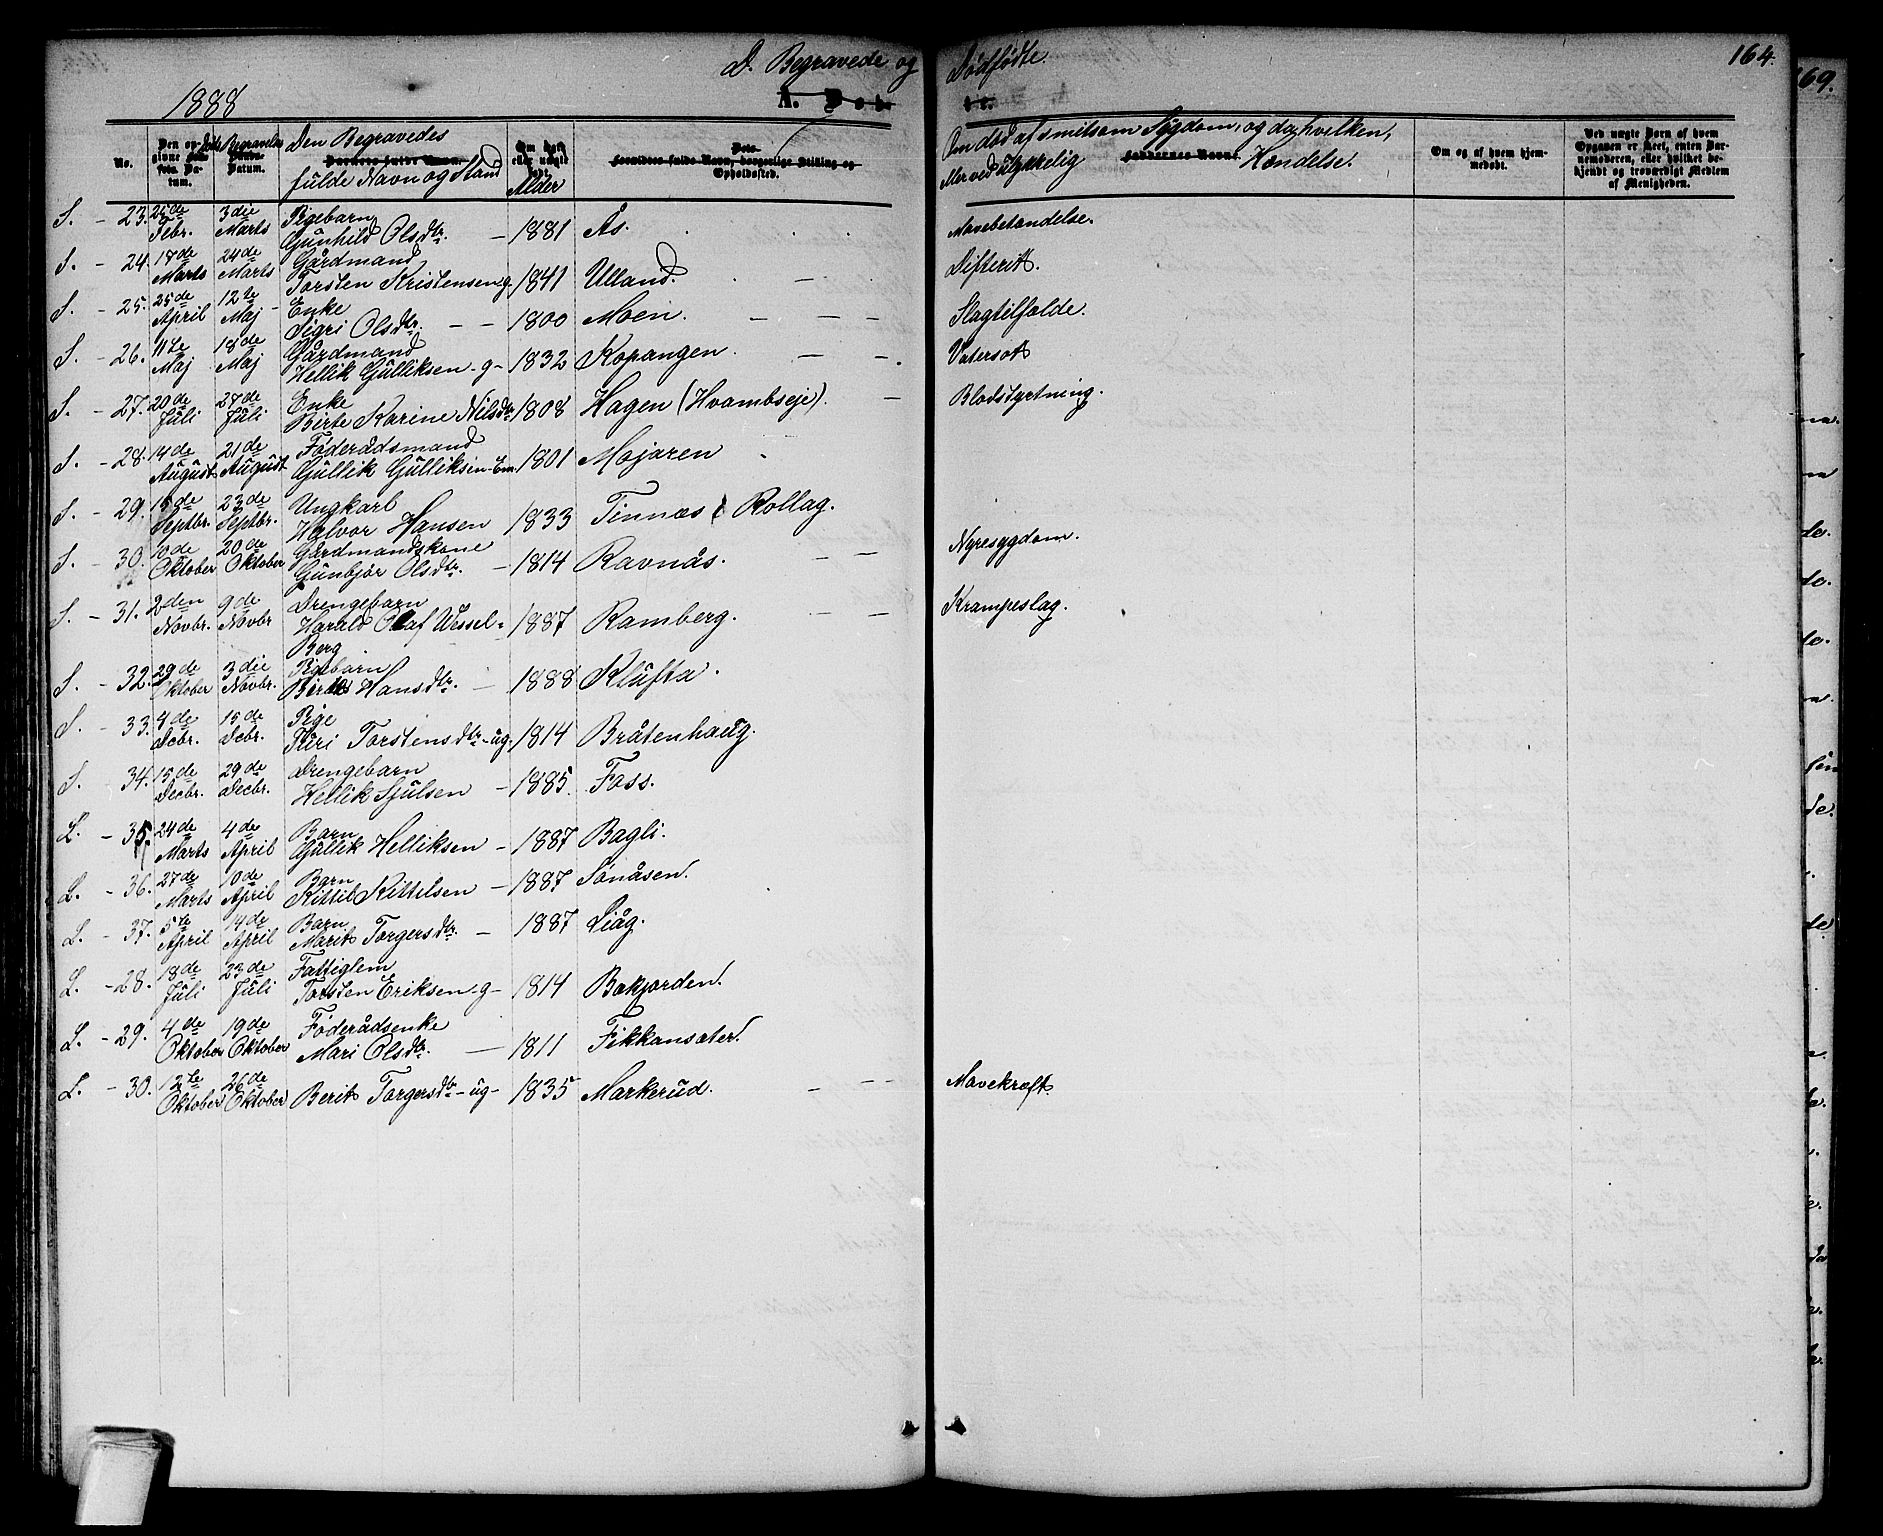 D. Begravede og Dødfødte. 164.
169.
1888
A. Døb te.
No.
Den opgivne Føds. Datum.
Døds
Begravelses
Daabs Datum.
Den Begravedes
Barnets fulde Navn.
fulde Navn og Stand
Om født eller uægte født
Alder
Dets Forældres fulde Navn, borgerlige Stilling og Opholdssted.
Om død af smitsom Sygdom, og da hvilken,
eller ved ulykkelig Hændelse.
Faddernes Navne.
Om og af hvem hjemmedøbt.
Ved uægte Barn af hvem Opgaven er skeet, enten Barnemoderen, eller hvilket bekjendt og troværdigt Medlem af Menigheden.
S. - 23. 25de Febr. 3die Marts Pigebarn
Gunhild Olsdtr. - 1881 Ås. Mavebetændelse.
S. - 24. 18de Marts 24de Marts Gårdmand
Torsten Kristensen g. 1841 Ulland. - Difterit.
S. - 25. 25de April 12te Maj - Enke
Sigri Olsdtr. - - 1800 Moen. - - - Slagtilfælde.
S. - 26. 11te Maj 18de Maj Gårdmand
Hellik Gulliksen - g - 1832 Kopangen. - - Vatersot.
S. - 27. 20de Juli 27de Juli Enke
Birte Karine Nilsdtr. 1808 Hagen (Hvambseje). - Blodstyrtning.
S. - 28. 14de August 21de August Føderådsmand
Gullik Gulliksen - Em. 1801 Mojaren
S. - 29. 15de Septbr. 23de Septbr. Ungkarl
Halvor Hansen 1833 Tinnæs i Rollag.
S. - 30. 10de Oktober 20de Oktober Gårdmandskone
Gunbjør Olsdtr. - 1814 Ravnås. - - Nyresygdom.
S. - 31. 2den Novbr. 9de Novbr Drengebarn
Harald Olaf Wessel - 1887 Ramberg. - - Krampeslag.
Berg
S. - 32. 29de Oktober 3die Novbr. Pigebarn
Birthe Hansdtr. - 1888 Klufta.
S. - 33. 4de Decbr. 15de Decbr. Pige
Turi Torstensdtr. - ug. 1814 Bråtenhaug.
S. 34. 15de Decbr. 29de Decbr. Drengebarn
Hellik Sjulsen - 1885. Foss.
L. - 35. 24de Marts 4de April Barn
Gullik Helliksen - 1887 Bagli.
L. - 36. 27de Marts 10de April Barn
Kittil Kittelsen - 1887 Sønåsen.
L. - 37. 5te April 14de April Barn
Marit Torgersdtr. - 1887 Liåg.
L. - 28. 18de Juli 23de Juli Fattiglem
Torsten Eriksen - g - 1814 Bakjorden.
L. - 29. 4de Oktober 19de Oktober Føderådsenke
Mari Olsdtr. - 1811 Fikkansæter.
L. - 30. 12te Oktober 26de Oktober Berit Torgersdtr. - ug - 1835 Markerud. - - Mavekræft.